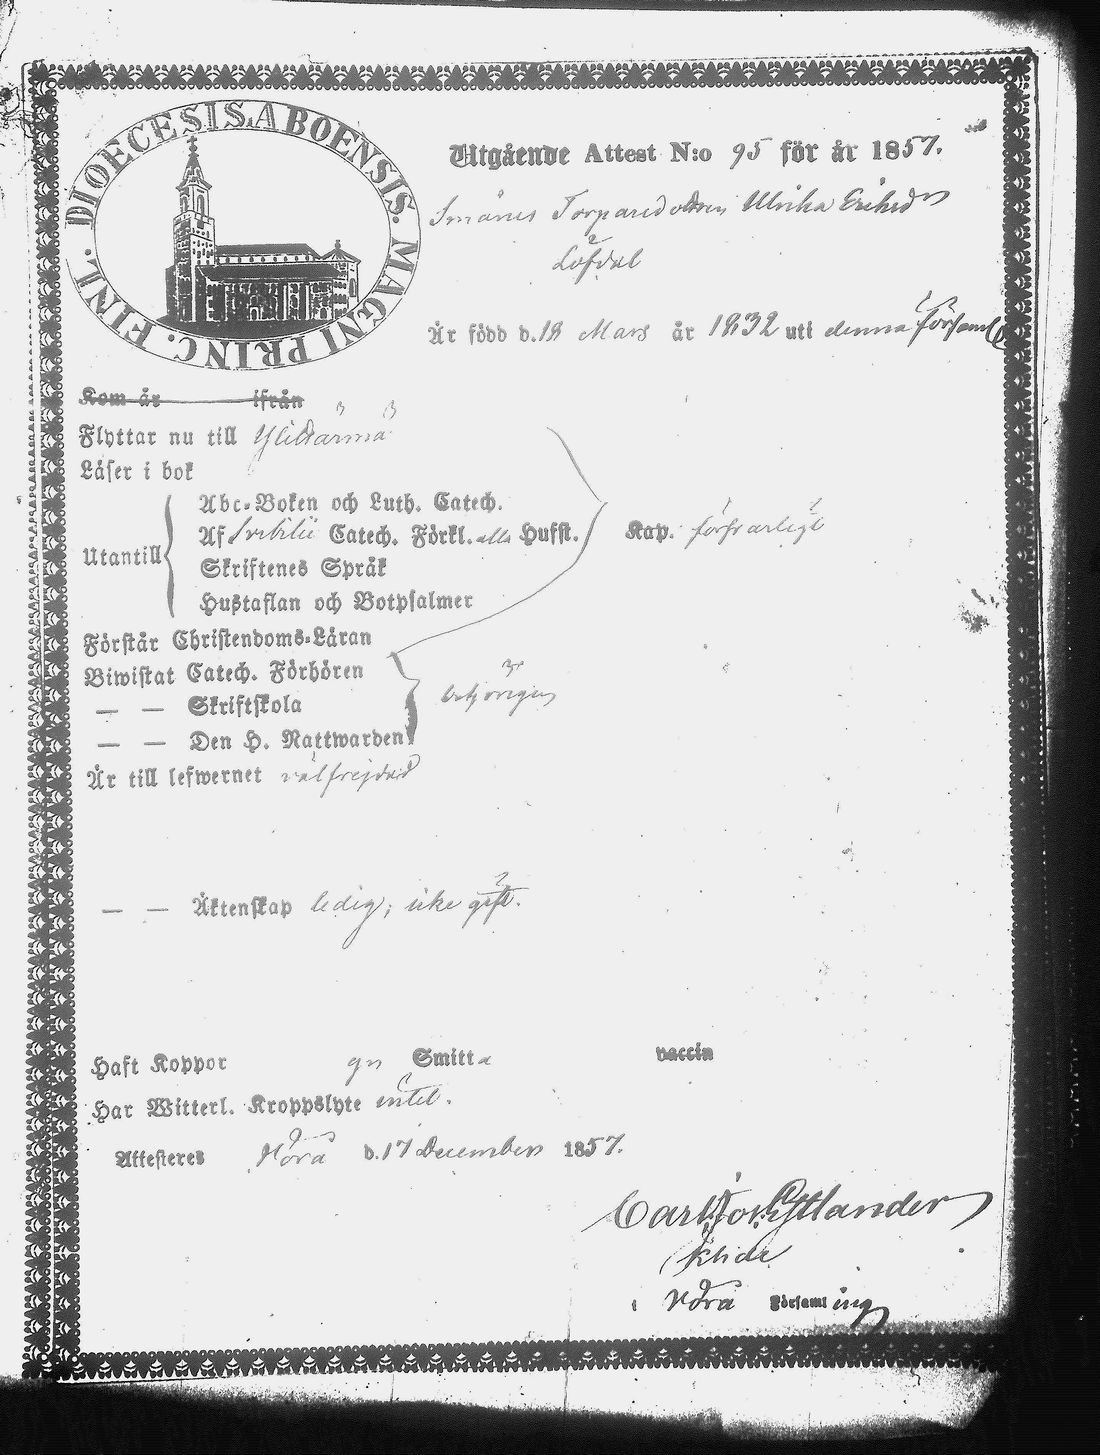 DIOECESIS ABOENSIS. MAGNI PRINC. FINL.
Utgående Attest N:o 95 för år 1857.
Torparedottren Ulrika Eriksdr
Löfdal
Är född d. 18 Mars år 1832 uti denna församl.
Kom år ifrån
Flyttar nu till Ylihärmä
Läser i bok
Abc-Boken och Luth. Catech.
Utantill Af Svebilii Catech. Förkl. alla Hufst. Kap. försvarligt
Skriftenes Språk
Hustaflan och Botpsalmer
Förstår Christendoms-Läran
Biwistat Catech. Förhören
— — Skriftskola behörigen
— — Den H. Nattwarden
Är till lefwernet välfrejdad
— — Äktenskap ledig, icke gift.
Haft Koppor gn Smitta vaccin
Har Witterl. Kroppslyte intet.
Attesteres Vörå d. 17 December 1857.
Carl
i Vörå Församling